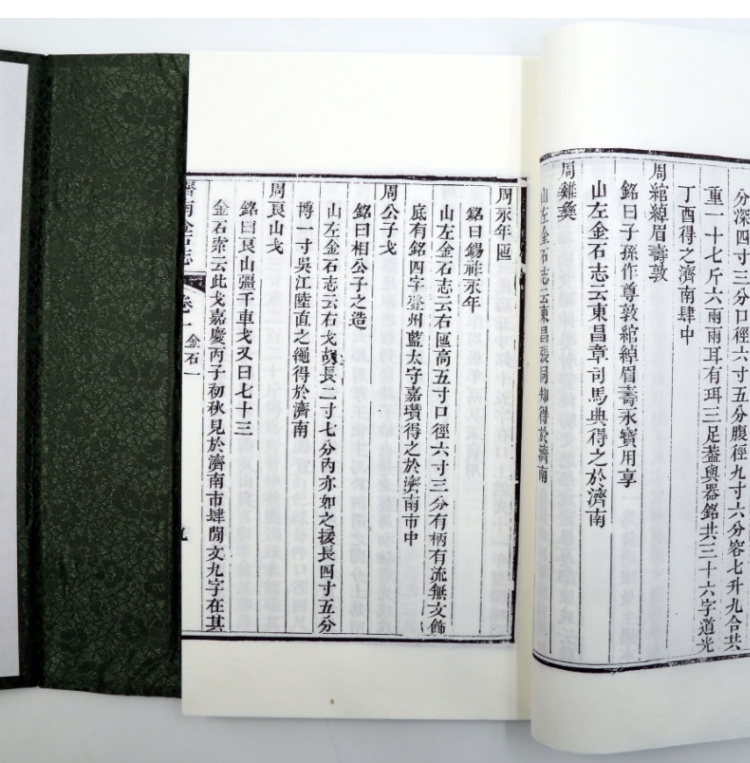 分深四寸三分口徑六寸五分腹徑九寸六分容七升九合共
重一十七斤六兩兩耳有珥三足蓋與器銘共三十六字道光
丁酉得之濟南肆中
周綰綽眉壽敦
銘曰子孫作尊敦綰綽眉壽永寶用享
山左金石志云東昌章司馬典得之於濟南
周雞彝
山左金石志云東昌張同知得於濟南
周永年匜
銘曰錫祥永年
山左金石志云右匜高五寸口徑六寸三分有柄有流無文飾
底有銘四字登州藍太守嘉瓚得之於濟南市中
周公子戈
銘曰相公子之造
山左金石志云右戈胡長二寸七分內亦如之援長四寸五分
博一寸吳江陸直之繩得於濟南
周良山戈
銘曰良山彊千車戈又曰七十三
金石索云此戈嘉慶丙子初秋見於濟南市肆間文九字在其
濟南金石志 卷一 金石一 九